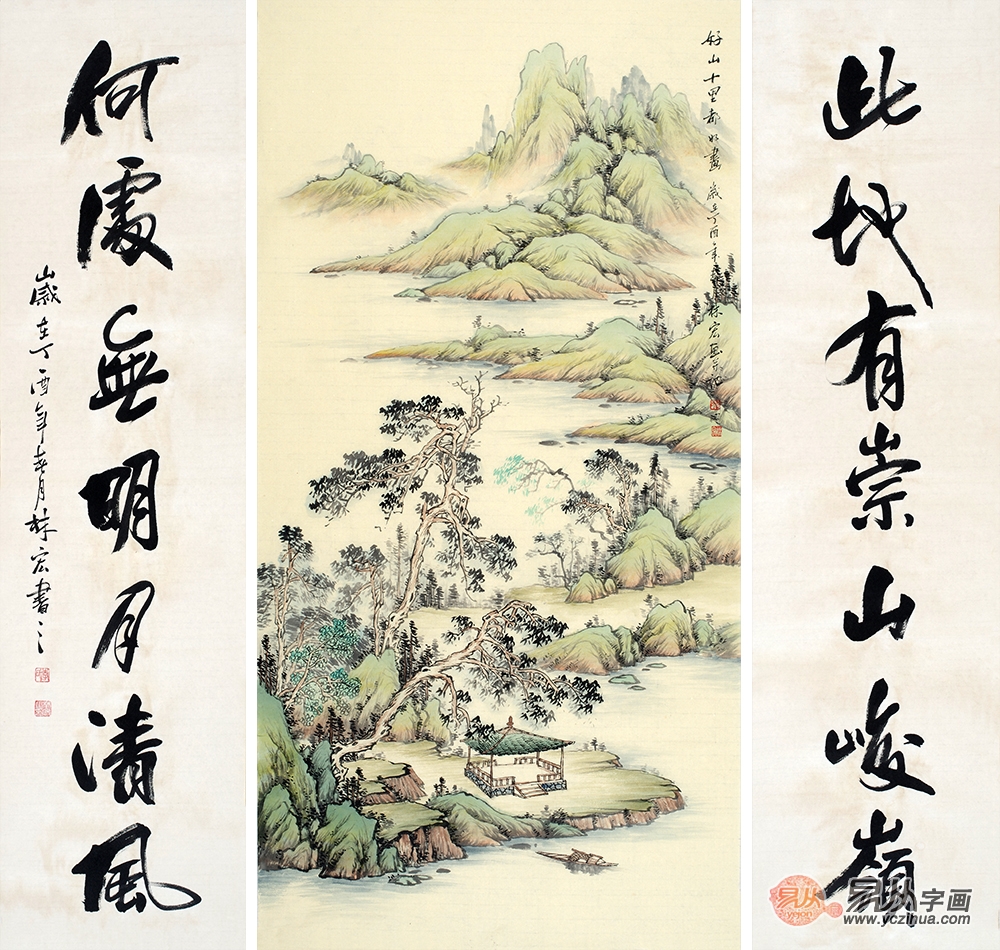 此地有崇山峻嶺
好山十里都如畫 歲在丁酉年 林宏
何處無明月清風
歲在丁酉年春月林宏書之
易从
易从字画
www.yczihua.com